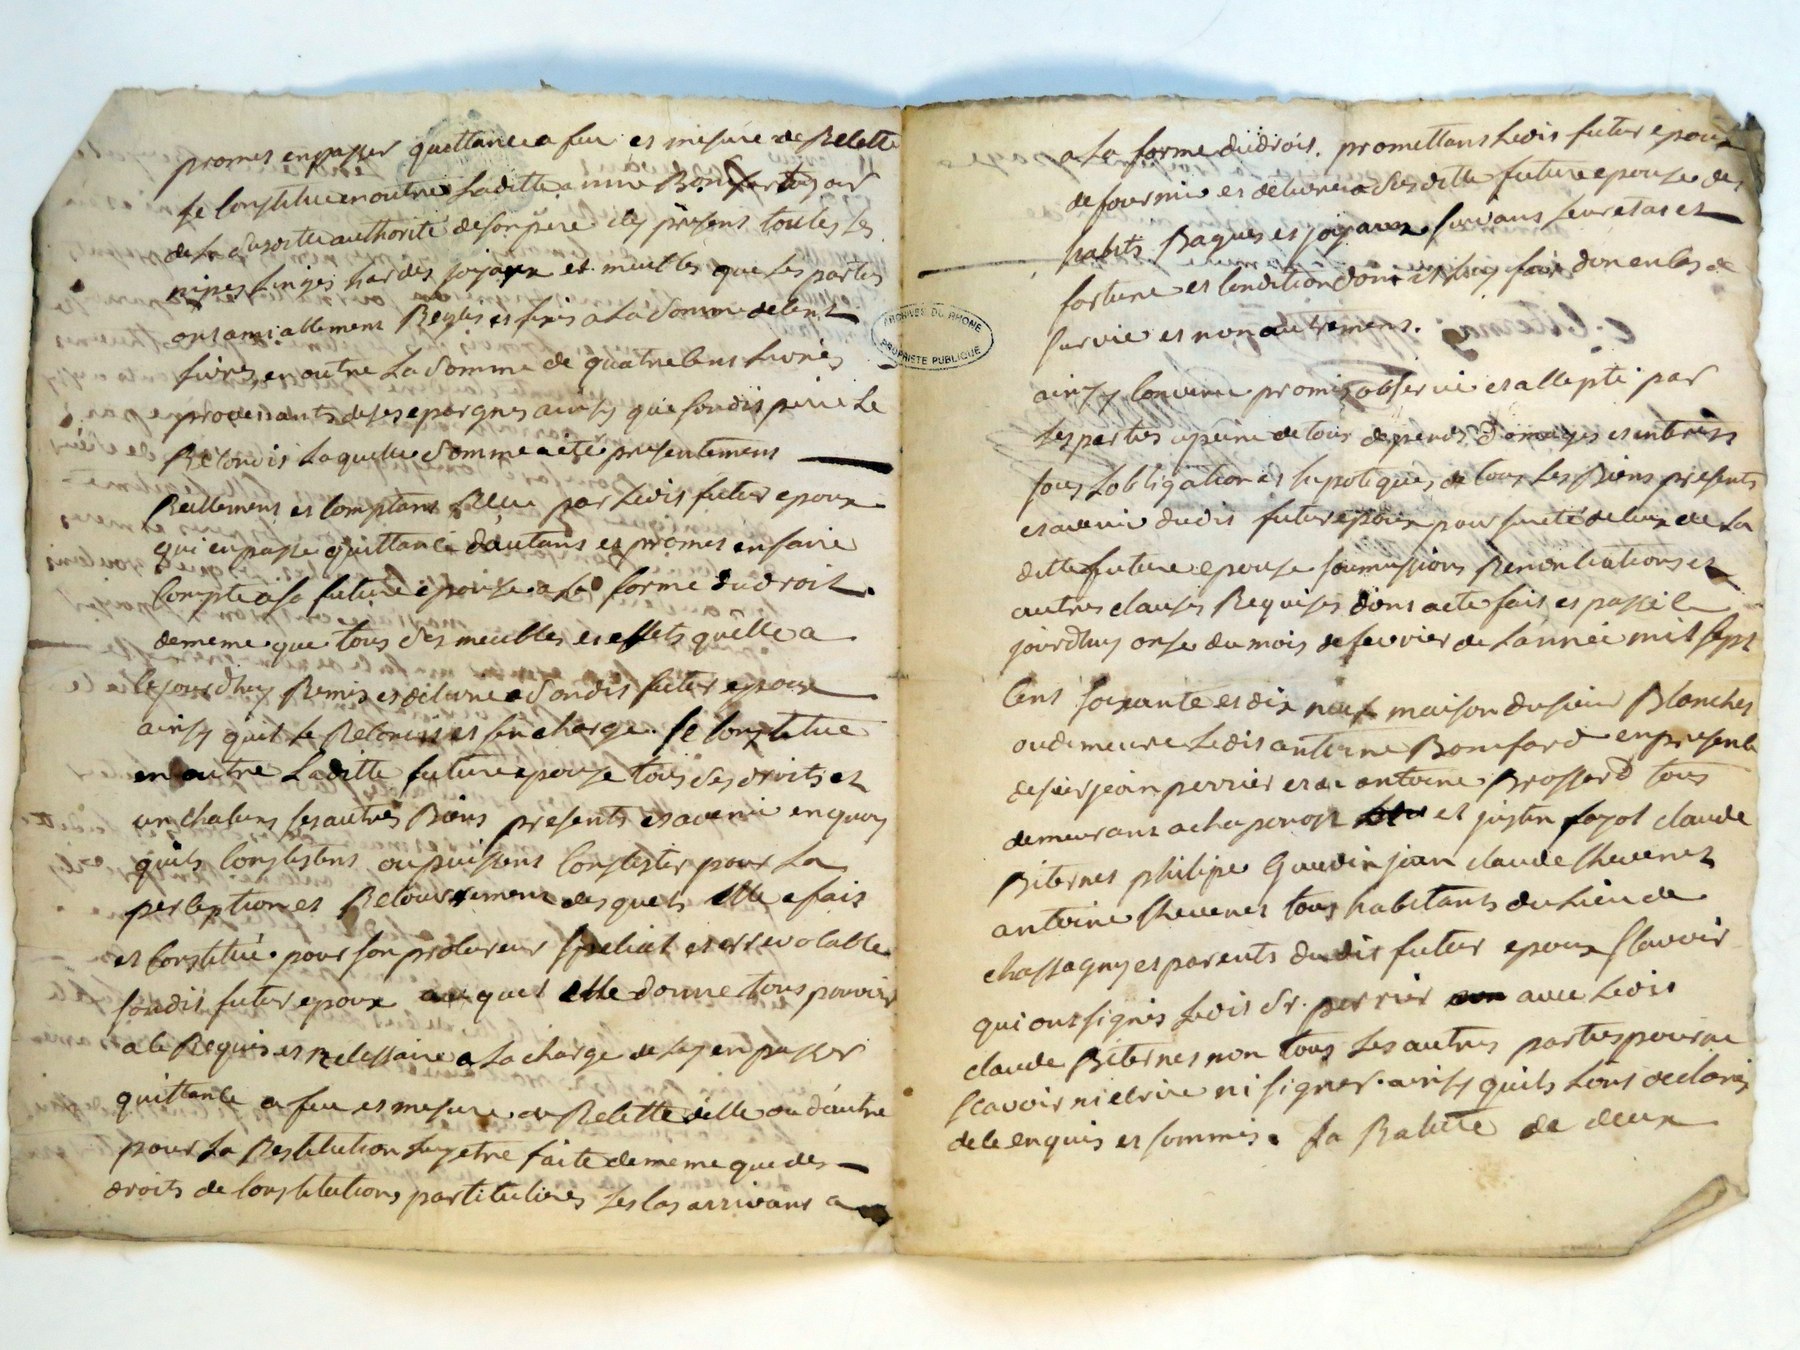 promet en passer quittance a feu et mesure de Relette
se Constitue en outre Laditte anne Bonnefard
de La susditte authorité de son pere icy present toutes ses
nipes Linges hardes joyaux et meubles que Les parties
ont amiablement Reglés et fixés a La somme de Cent
livres, en outre La somme de quatre Cent Livres
provenants de ses epargnes ainsy que sondit pere Le
Reconoit Laquelle somme a eté presentement
Reellement et Comptant Reçue par Ledit futur epoux
qui en passe quittance d'autant et promet en faire
Compte a sa future epouse a La forme du droit
de meme que tous ses meubles et effets quelle a
Cejourdhuy Remis et delivré a sondit futur epoux
ainsy quil Le Reconoit et s'en charge. Se Constitue
en outre Laditte future epouse tous ses droits et
un chacuns ses autres Biens presents et avenir en quoy
quils Consistent ou puissent Consister pour La
perception et Recouvrement desquels Elle a fait
et Constitué pour son procureur special et irrevocable
sondit futur epoux auquel Elle donne tous pouvoir
a Ce Requis et necessaire a La charge de Luy en passer
quittance a feu et mesure de Relette d'elle ou d'autre
pour La Restitution Luy etre faite de meme que des
droits de Constitutions particulieres Le Cas arrivant a
ARCHIVES DU RHONE
PROPRIETE PUBLIQUE
a La forme du droit. promettant Ledit futur epoux
de fournir et delivrer a saditte future epouse des
habits Bagues et joyaux suivant Leur etat et
fortune et Condition dont il Luy fait don en Cas de
survie et non autrement.
ainsy Convenu promis observé et accepté par
Les parties a peine de tous depends Domages et interets
sous Lobligation et hypotiques de tous Les Biens presents
et avenir dudit futur epoux pour sureté de Ceux de La
ditte future epouse soumissions Renontiations et
autres clauses Requises dont acte fait et passé Ce
jourdhuy onse du mois de fevrier de Lannée mil sept
Cent soixante et dix neuf maison du sieur Blanchet
ou demeure Ledit antoine Bonnefard en presence
de sieur jean perrier et de antoine Brossard tous
demeurant a chaponost et justin fayol claude
Biternet philipe Gaudin jean claude thevenet
antoine thevenet tous habitants du Lieu de
chassagny et parents dudit futur epoux scavoir
qui ont signés Ledit Sr. perrier avec Ledit
claude Biternet non tous Les autres parties pour ne
scavoir ni ecrire ni signer. ainsy quils Lont declarés
de Ce enquis et sommés. La Rature de deux